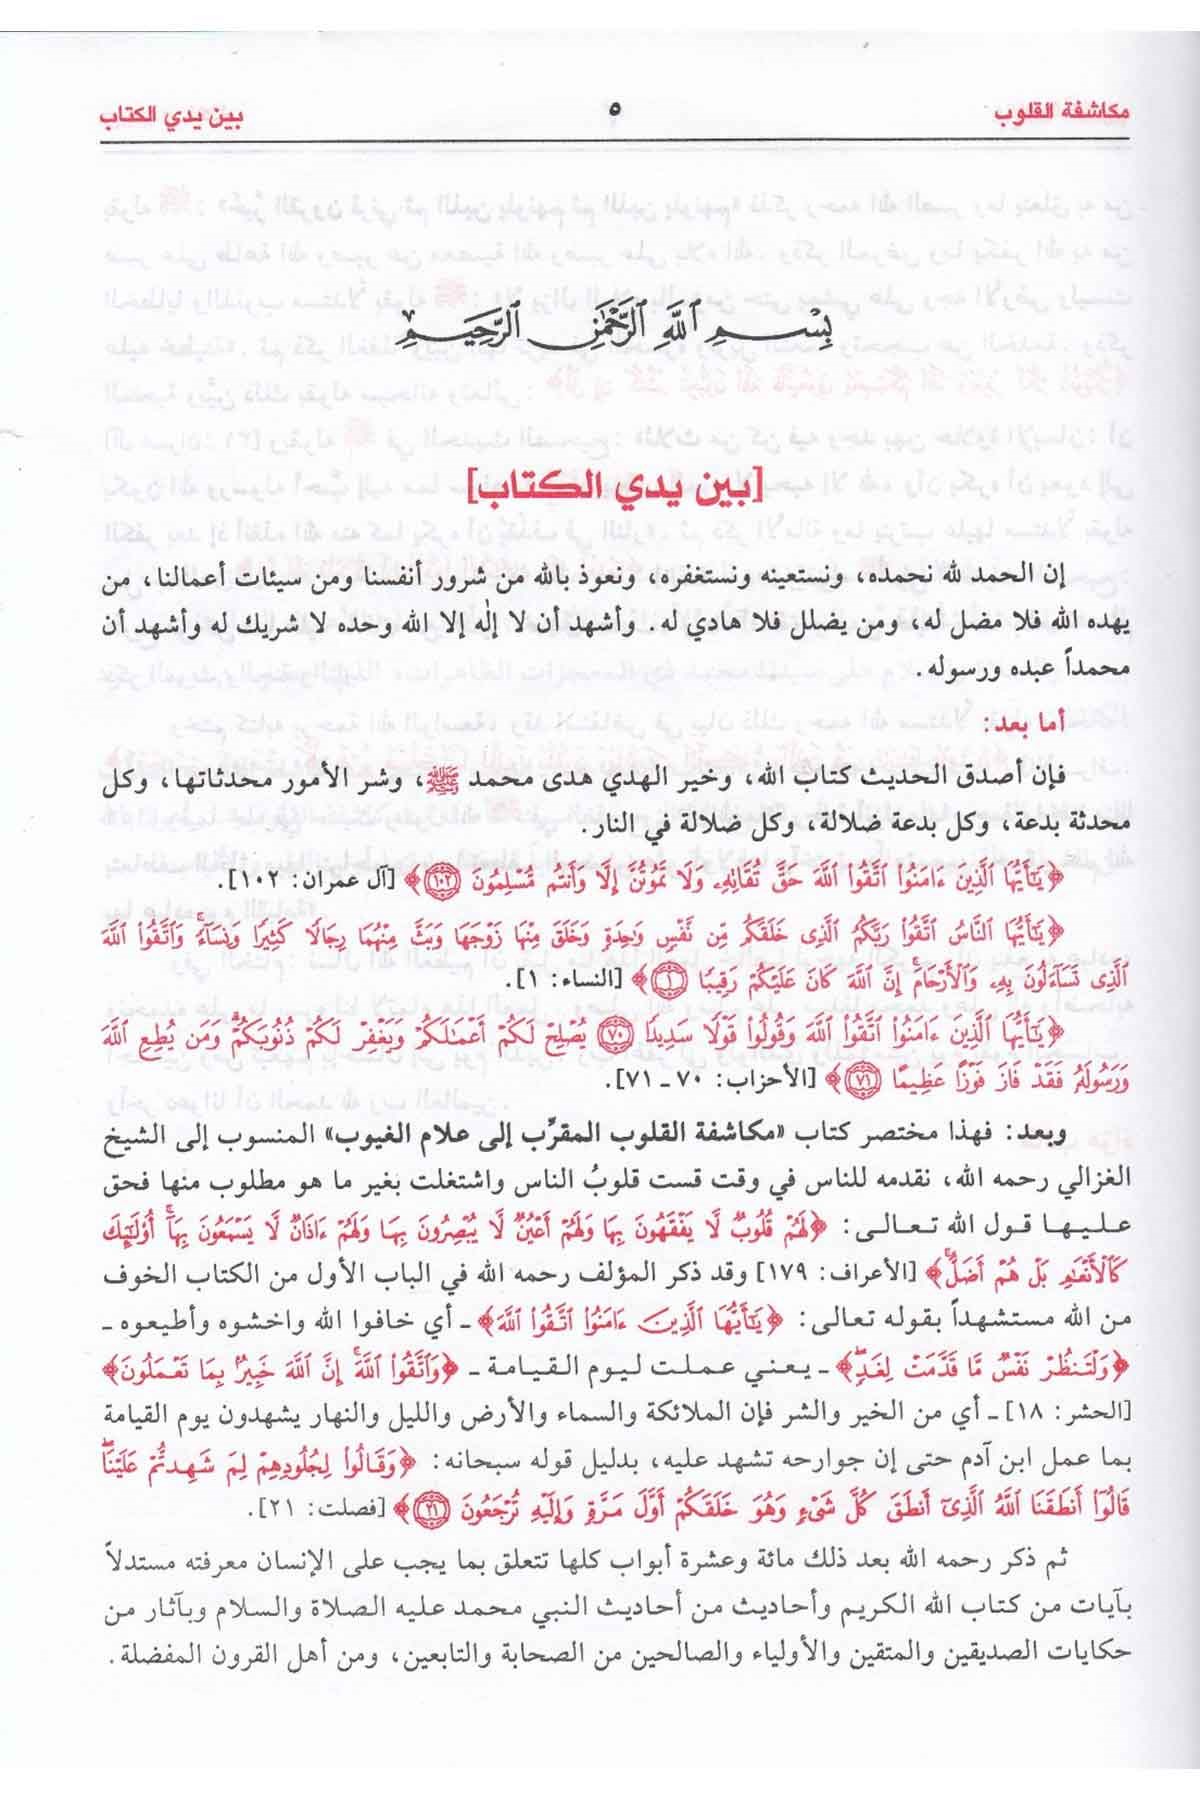 مكاشفة القلوب ٥ بين يدي الكتاب
بِسْمِ اللَّهِ الرَّحْمَٰنِ الرَّحِيمِ
[بين يدي الكتاب]
إن الحمد لله نحمده، ونستعينه ونستغفره، ونعوذ بالله من شرور أنفسنا ومن سيئات أعمالنا، من
يهده الله فلا مضل له، ومن يضلل فلا هادي له. وأشهد أن لا إلٰه إلا الله وحده لا شريك له وأشهد أن
محمداً عبده ورسوله.
أما بعد:
فإن أصدق الحديث كتاب الله، وخير الهدي هدى محمد ﷺ، وشر الأمور محدثاتها، وكل
محدثة بدعة، وكل بدعة ضلالة، وكل ضلالة في النار.
﴿يَٰٓأَيُّهَا ٱلَّذِينَ ءَامَنُوا۟ ٱتَّقُوا۟ ٱللَّهَ حَقَّ تُقَاتِهِۦ وَلَا تَمُوتُنَّ إِلَّا وَأَنتُم مُّسْلِمُونَ ١٠٢﴾ [آل عمران: ١٠٢].
﴿يَٰٓأَيُّهَا ٱلنَّاسُ ٱتَّقُوا۟ رَبَّكُمُ ٱلَّذِى خَلَقَكُم مِّن نَّفْسٍ وَٰحِدَةٍ وَخَلَقَ مِنْهَا زَوْجَهَا وَبَثَّ مِنْهُمَا رِجَالًا كَثِيرًا وَنِسَآءً ۚ وَٱتَّقُوا۟ ٱللَّهَ
ٱلَّذِى تَسَآءَلُونَ بِهِۦ وَٱلْأَرْحَامَ ۚ إِنَّ ٱللَّهَ كَانَ عَلَيْكُمْ رَقِيبًا ١﴾ [النساء: ١].
﴿يَٰٓأَيُّهَا ٱلَّذِينَ ءَامَنُوا۟ ٱتَّقُوا۟ ٱللَّهَ وَقُولُوا۟ قَوْلًا سَدِيدًا ٧٠ يُصْلِحْ لَكُمْ أَعْمَٰلَكُمْ وَيَغْفِرْ لَكُمْ ذُنُوبَكُمْ ۗ وَمَن يُطِعِ ٱللَّهَ
وَرَسُولَهُۥ فَقَدْ فَازَ فَوْزًا عَظِيمًا ٧١﴾ [الأحزاب: ٧٠ ـ ٧١].
وبعد: فهذا مختصر كتاب «مكاشفة القلوب المقرِّب إلى علام الغيوب» المنسوب إلى الشيخ
الغزالي رحمه الله، نقدمه للناس في وقت قست قلوبُ الناس واشتغلت بغير ما هو مطلوب منها فحق
عليها قول الله تعالى: ﴿لَهُمْ قُلُوبٌ لَّا يَفْقَهُونَ بِهَا وَلَهُمْ أَعْيُنٌ لَّا يُبْصِرُونَ بِهَا وَلَهُمْ ءَاذَانٌ لَّا يَسْمَعُونَ بِهَآ ۚ أُو۟لَٰٓئِكَ
كَٱلْأَنْعَٰمِ بَلْ هُمْ أَضَلُّ ۚ﴾ [الأعراف: ١٧٩] وقد ذكر المؤلف رحمه الله في الباب الأول من الكتاب الخوف
من الله مستشهداً بقوله تعالى: ﴿يَٰٓأَيُّهَا ٱلَّذِينَ ءَامَنُوا۟ ٱتَّقُوا۟ ٱللَّهَ﴾ ـ أي خافوا الله واخشوه وأطيعوه ـ
﴿وَلْتَنظُرْ نَفْسٌ مَّا قَدَّمَتْ لِغَدٍ ۖ﴾ ـ يعني عملت ليوم القيامة ـ ﴿وَٱتَّقُوا۟ ٱللَّهَ ۚ إِنَّ ٱللَّهَ خَبِيرٌۢ بِمَا تَعْمَلُونَ﴾
[الحشر: ١٨] ـ أي من الخير والشر فإن الملائكة والسماء والأرض والليل والنهار يشهدون يوم القيامة
بما عمل ابن آدم حتى إن جوارحه تشهد عليه، بدليل قوله سبحانه: ﴿وَقَالُوا۟ لِجُلُودِهِمْ لِمَ شَهِدتُّمْ عَلَيْنَا ۖ
قَالُوٓا۟ أَنطَقَنَا ٱللَّهُ ٱلَّذِىٓ أَنطَقَ كُلَّ شَىْءٍ وَهُوَ خَلَقَكُمْ أَوَّلَ مَرَّةٍ وَإِلَيْهِ تُرْجَعُونَ ٢١﴾ [فصلت: ٢١].
ثم ذكر رحمه الله بعد ذلك مائة وعشرة أبواب كلها تتعلق بما يجب على الإنسان معرفته مستدلاً
بآيات من كتاب الله الكريم وأحاديث من أحاديث النبي محمد عليه الصلاة والسلام وبآثار من
حكايات الصديقين والمتقين والأولياء والصالحين من الصحابة والتابعين، ومن أهل القرون المفضلة.